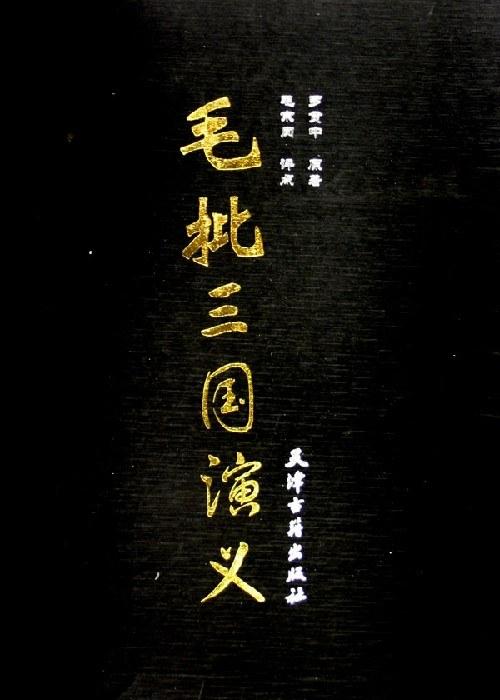 毛批三国演义
罗贯中 原著
毛宗岗 评点
天津古籍出版社